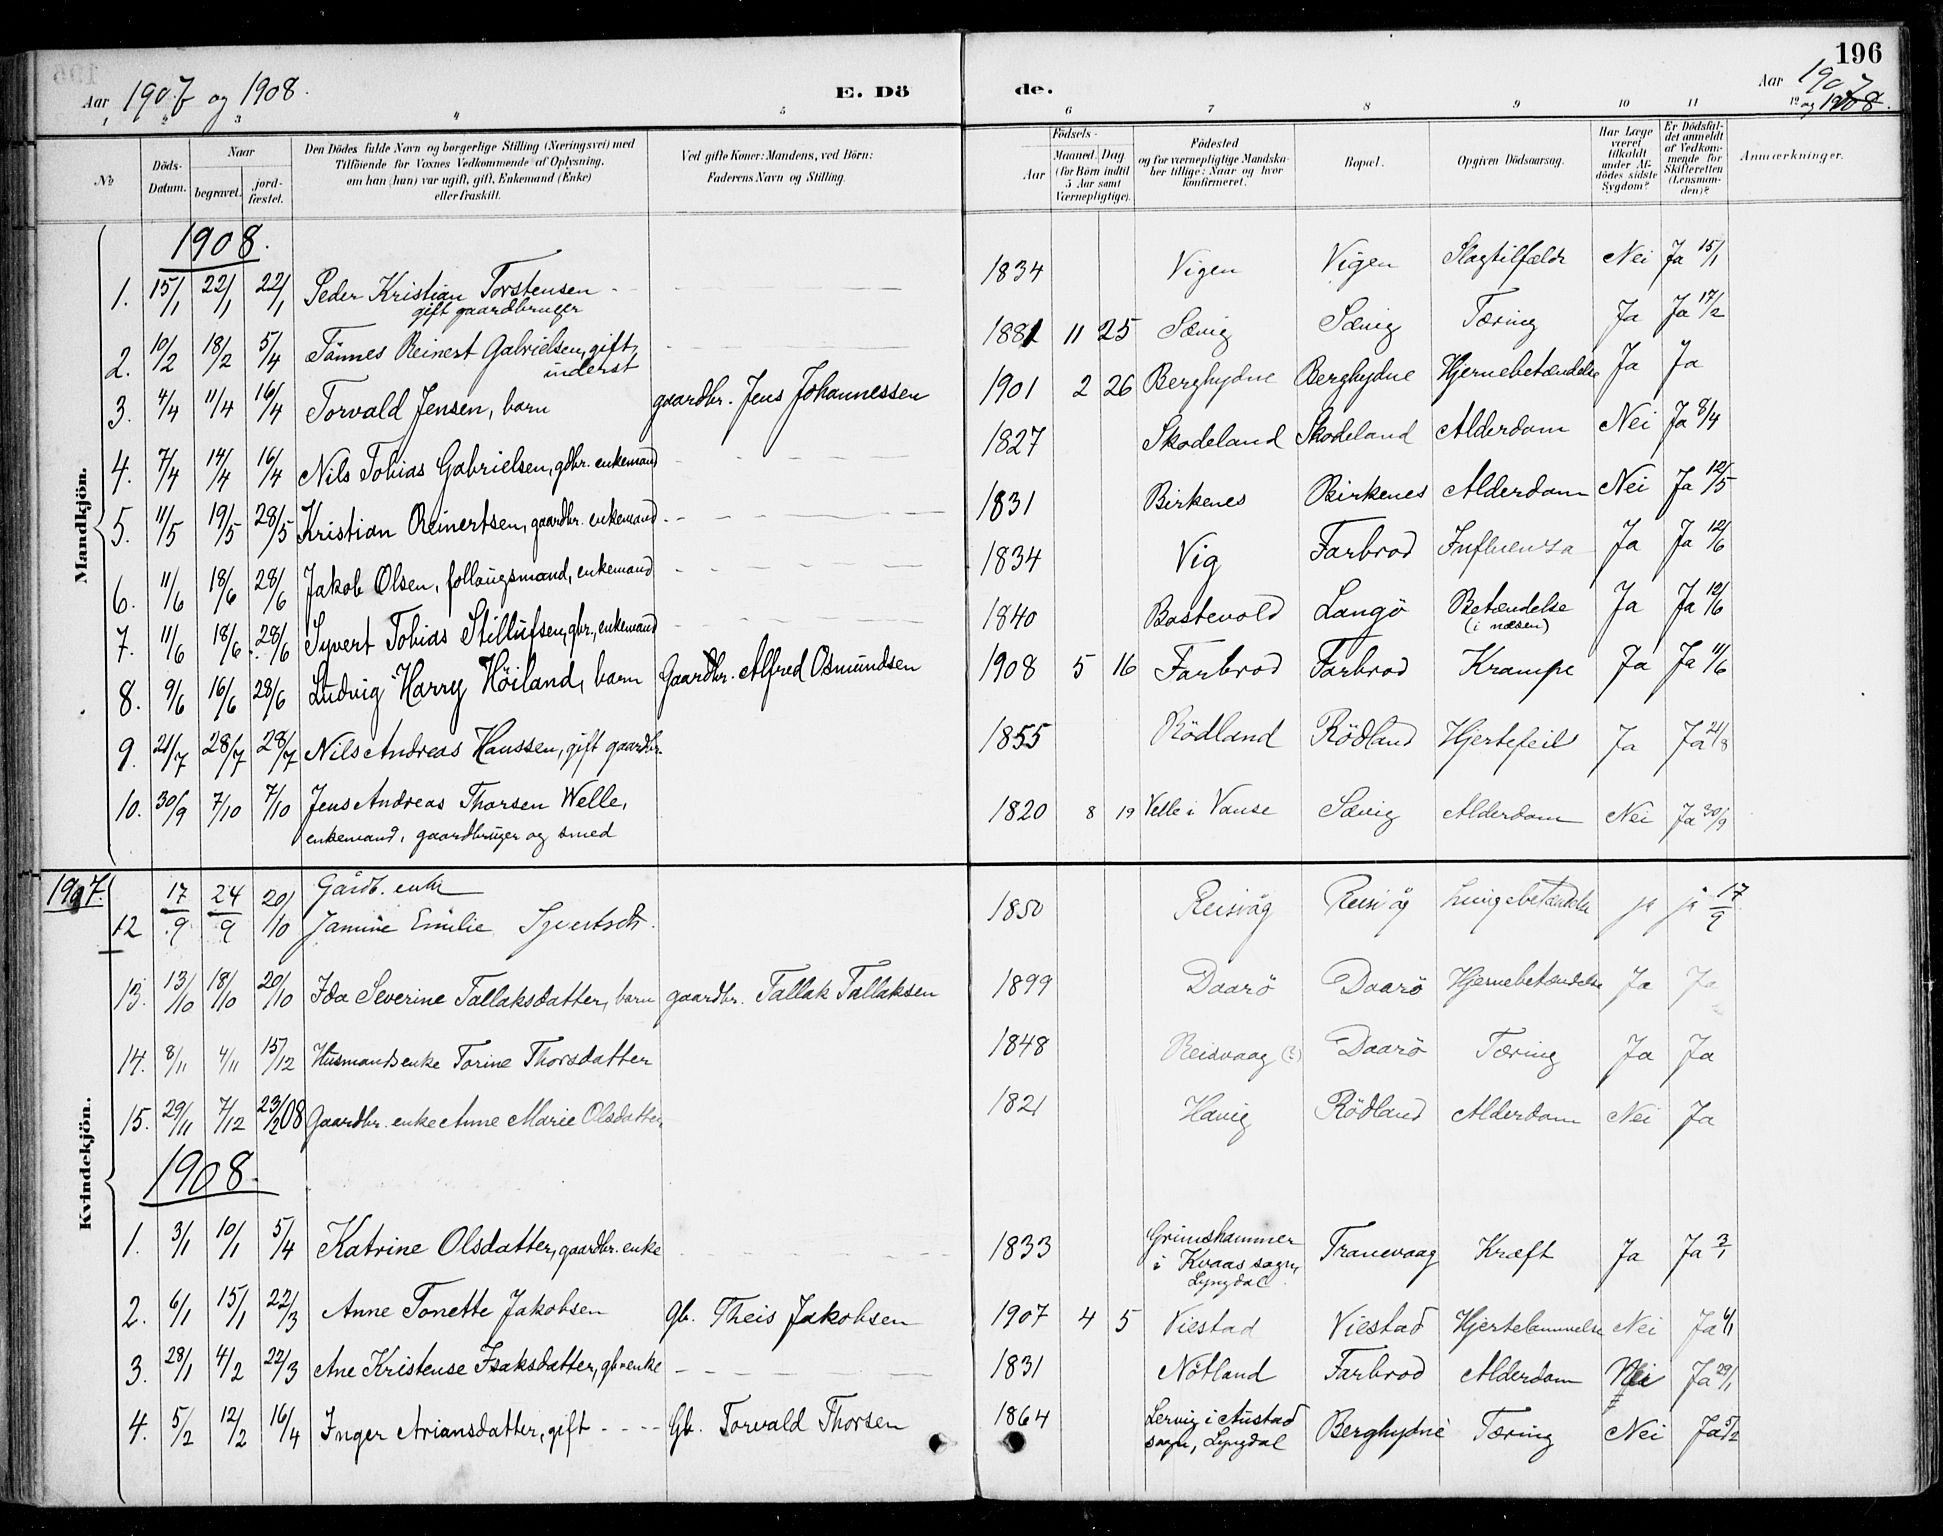 196
Aar 1907 og 1908.
E. Dö
de.
Aar 1907 og 1908.
1 2 3 4 5 6 7 8 9 10 11 12
No
Döds-Datum.
Naar
begravet.
jord-fæstet.
Den Dödes fulde Navn og borgerlige Stilling (Næringsvei) med
Tilföiende for Voxnes Vedkommende af Oplysning,
om han (hun) var ugift, gift, Enkemand (Enke)
eller fraskilt.
Ved gifte Koner: Mandens, ved Börn:
Faderens Navn og Stilling.
Födsels-
Aar
Maaned. Dag
(for Börn indtil
5 Aar samt
Værnepligtige).
Födested
og for værnepligtige Mandska-
ber tillige: Naar og hvor
konfirmeret.
Bopæl.
Opgiven Dödsaarsag.
Har Læge
været
tilkaldt
under Af-
dödes sidste
Sygdom?
Er Dödsfal-
det anmeldt
af Vedkom-
mende for
Skifteretten
(Lensman-
den)?
Anmærkninger.
Mandkjön.
1908.
1. 15/1 22/1 22/1 Peder Kristian Torstensen 1834 Vigen Vigen Slagtilfælde Nei Ja 15/1
gift gaardbruger
2. 10/2 18/2 5/4 Tönnes Reinert Gabrielsen, gift, 1881 11 25 Sævig Sævig Tæring Ja Ja 17/2
inderst
3. 4/4 11/4 16/4 Torvald Jensen, barn gaardbr. Jens Johannessen 1901 2 26 Berghydne Berghydne Hjernebetændelse Ja Ja
4. 7/4 14/4 16/4 Nils Tobias Gabrielsen, gdbr. enkemand 1827 Skodeland Skodeland Alderdom Nei Ja 8/4
5. 11/5 19/5 28/5 Kristian Reinertsen, gaardbr. enkemand 1831 Birkenes Birkenes Alderdom Nei Ja 12/5
6. 11/6 18/6 28/6 Jakob Olsen, follaugsmand, enkemand 1834 Vig Farbrod Influenza Ja Ja 12/6
7. 11/6 18/6 28/6 Syvert Tobias Stillufsen, gbr., enkemand 1840 Bastevold Langö Betændelse Ja Ja 12/6
(i næsen)
8. 9/6 16/6 28/6 Ludvig Harry Höiland, barn Gaardbr. Alfred Osmundsen 1908 5 16 Farbrod Farbrod Krampe Ja Ja 11/6
9. 21/7 28/7 28/7 Nils Andreas Hanssen, gift gaardbr. 1855 Rödland Rödland Hjertefeil Ja Ja 21/8
10. 30/9 7/10 7/10 Jens Andreas Thorsen Welle, 1820 8 19 Velle i Vanse Sævig Alderdom Nei Ja 30/9
enkemand, gaardbruger og smed
Kvindekjön.
1907.
Gårdb. enke
12 17/9 24/9 20/10 Jamine Emilie Syvertsdt. 1850 Reisvåg Reisvåg Lungebetændelse ja ja 17/9
13. 13/10 18/10 20/10 Ida Severine Tallaksdatter, barn gaardbr. Tallak Tallaksen 1899 Daarö Daarö Hjernebetændelse Ja Ja
14. 8/11 4/11 15/12 Husmandsenke Torine Thorsdatter 1848 Reisvaag (?) Daarö Tæring Ja Ja
15. 29/11 7/12 23/2 08 Gaardbr. enke Anne Marie Olsdatter, 1821 Havig Rödland Alderdom Nei Ja
1908.
1. 3/1 10/1 5/4 Katrine Olsdatter, gaardbr. enke 1833 Grimshammer i Kvaas sogn, Lyngdal. Tranevaag Kræft Ja Ja 3/1
2. 6/1 15/1 22/3 Anne Tonette Jakobsen Gb. Theis Jakobsen 1907 4 5 Viestad Viestad Hjertelammelse Nei Ja 6/1
3. 28/1 4/2 22/3 Ane Kristense Isaksdatter, gb-enke 1831 Nötland Farbrod Alderdom Nei Ja 29/1
4. 5/2 12/2 16/4 Inger Ariansdatter, gift Gb. Torvald Thorsen 1864 Lervig i Austad sogn, Lyngdal Berghydne Tæring Nei Ja 5/2